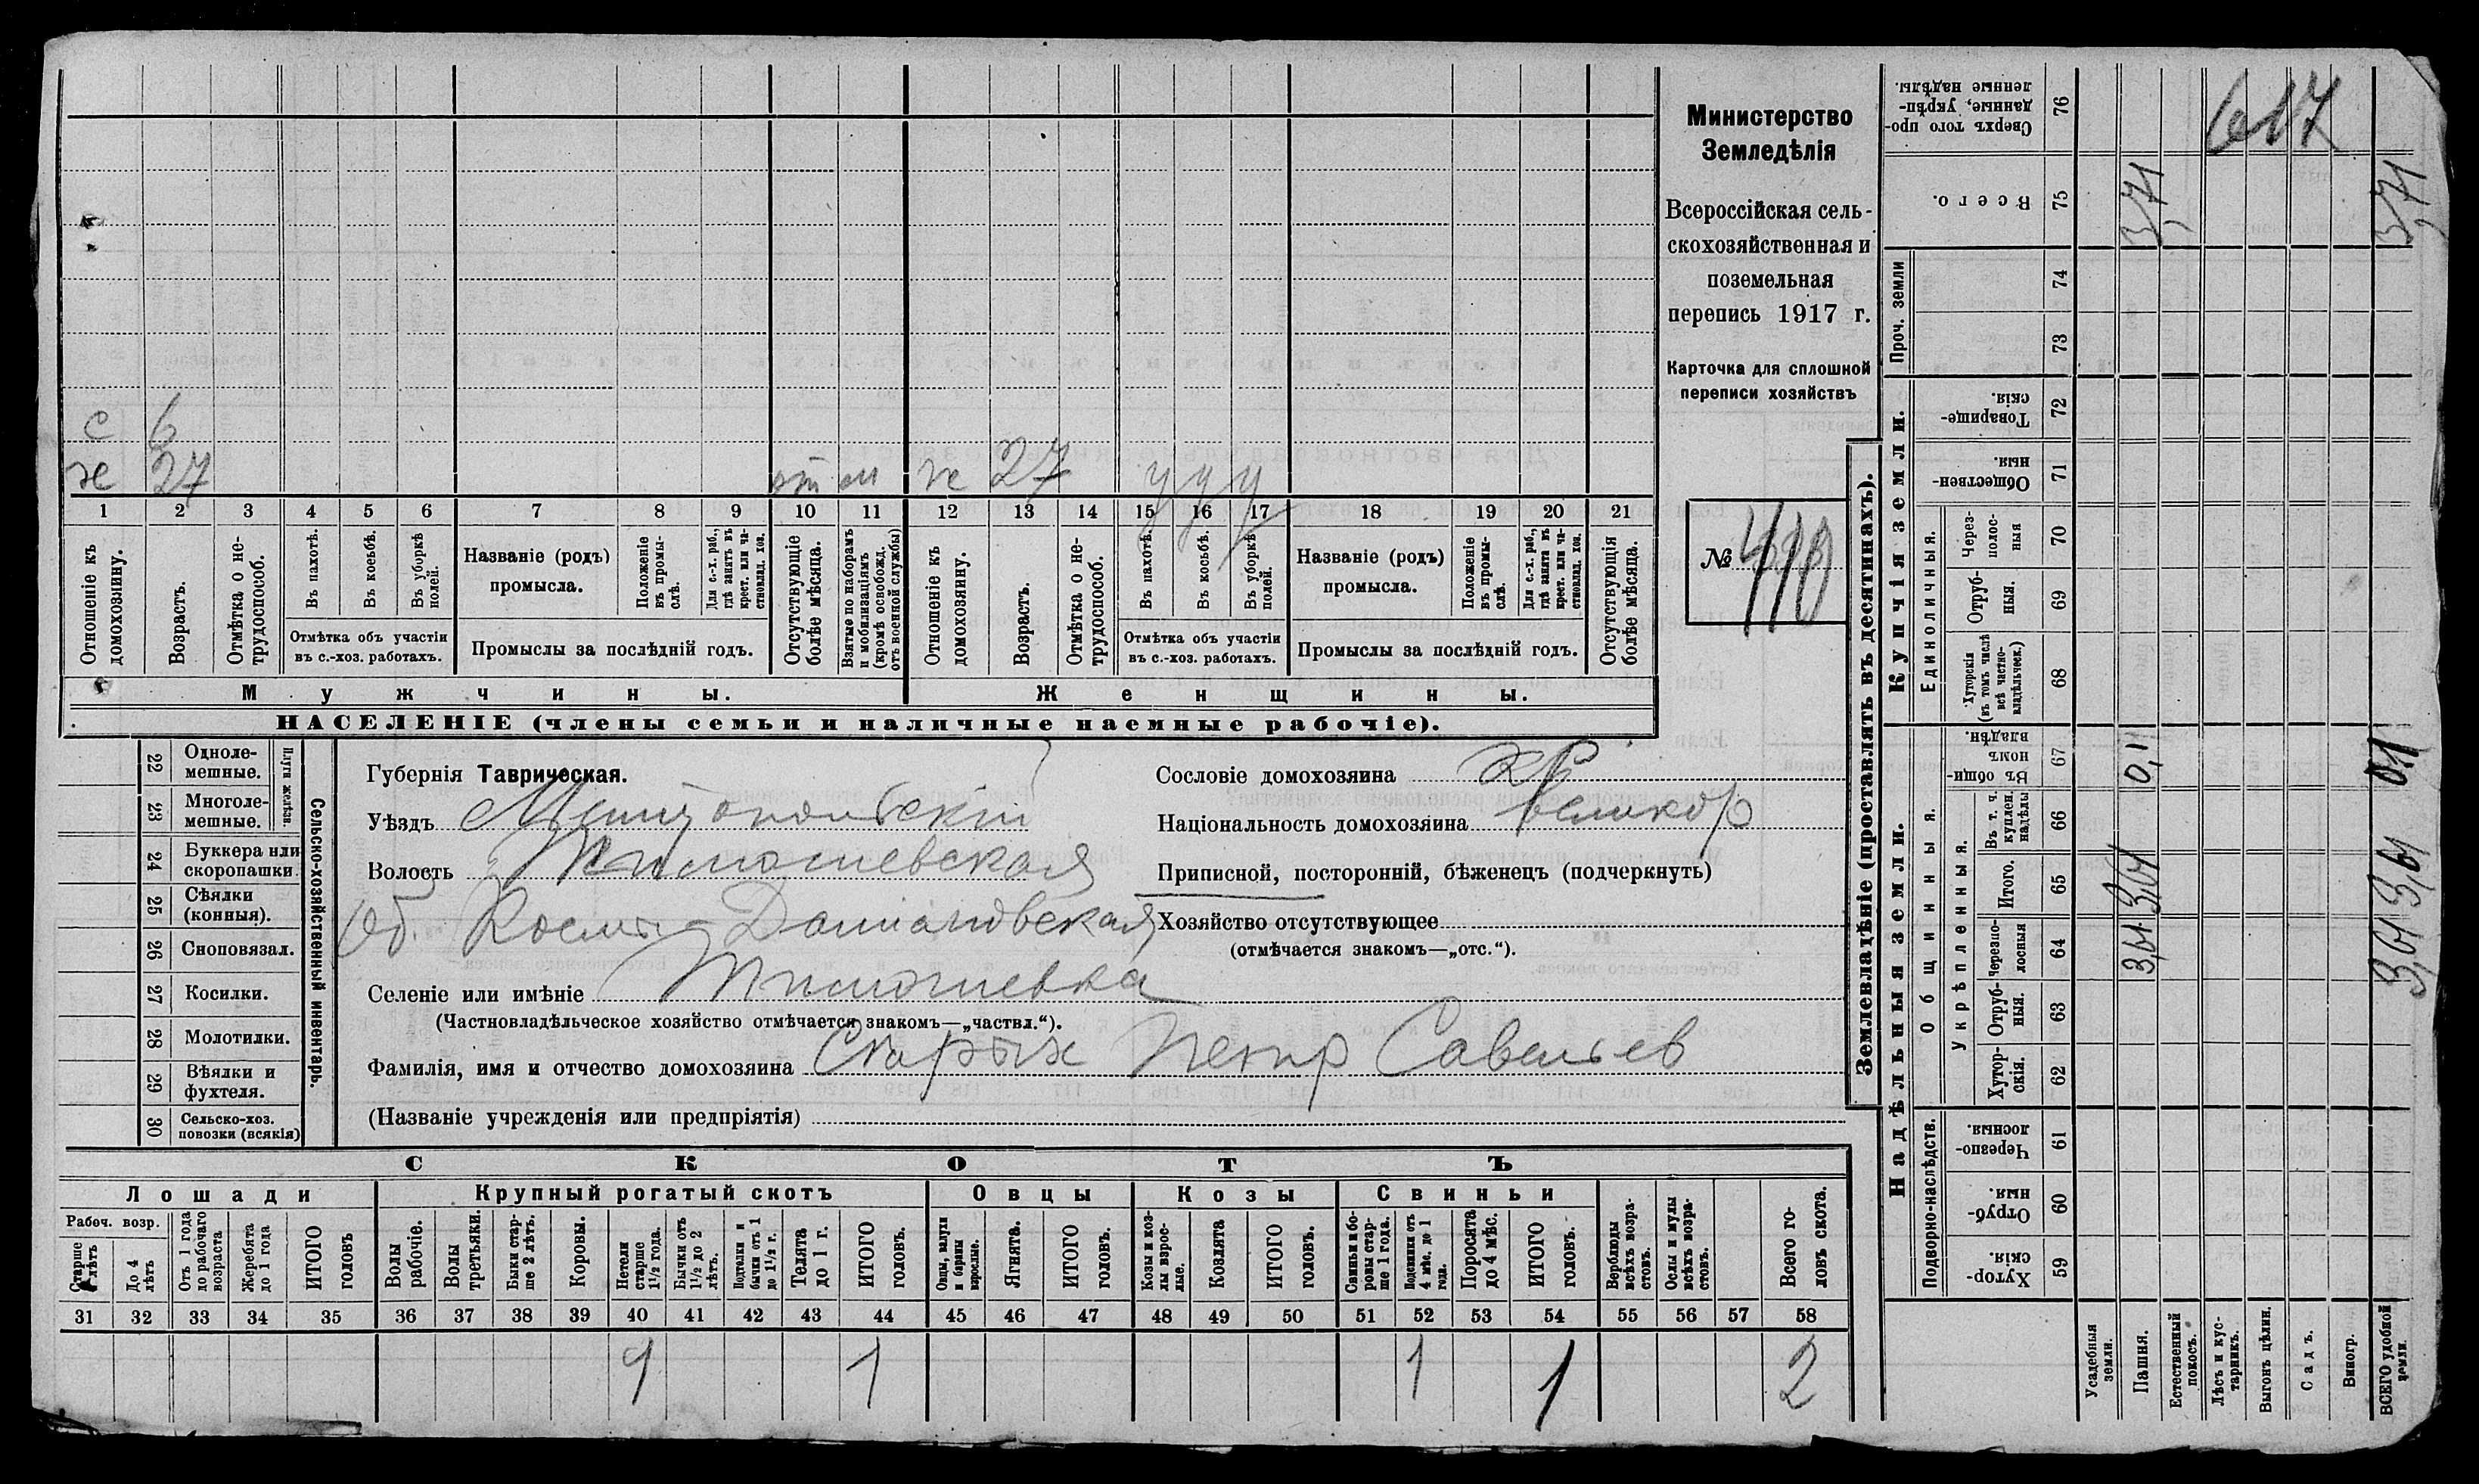 с 6
ж 27 ж 27 у у у
1 2 3 4 5 6 7 8 9 10 11 12 13 14 15 16 17 18 19 20 21
Отношеніе къ домохозяину.
Возрастъ.
Отмѣтка о не-трудоспособ.
Въ пахотѣ.
Въ косьбѣ.
Въ уборкѣ полей.
Отмѣтка объ участіи
въ с.-хоз. работахъ.
Названіе (родъ)
промысла.
Положеніе въ промы-слѣ.
Для с.-х. раб., гдѣ занятъ въ крест. или ча-стновлад. хоз.
Промыслы за послѣдній годъ.
Отсутствующіе болѣе мѣсяца.
Взятые по наборамъ и мобилизаціямъ (кромѣ освобожд. отъ военной службы)
Отношеніе къ домохозяину.
Возрастъ.
Отмѣтка о не-трудоспособ.
Въ пахотѣ.
Въ косьбѣ.
Въ уборкѣ полей.
Отмѣтка объ участіи
въ с.-хоз. работахъ.
Названіе (родъ)
промысла.
Положеніе въ промы-слѣ.
Для с.-х. раб., гдѣ занята въ крест. или ча-стновлад. хоз.
Промыслы за послѣдній годъ.
Отсутствующія болѣе мѣсяца.
Мужчины. Женщины.
НАСЕЛЕНІЕ (члены семьи и наличные наемные рабочіе).
Министерство
Земледѣлія
Всероссійская сель-
скохозяйственная и
поземельная
перепись 1917 г.
Карточка для сплошной
переписи хозяйствъ
№
22 Одноле-мешные.
23 Многоле-мешные.
Плуги желѣзн.
24 Буккера или скоропашки.
25 Сѣялки (конныя).
26 Сноповязал.
27 Косилки.
28 Молотилки.
29 Вѣялки и фухтеля.
30 Сельско-хоз. повозки (всякія)
Сельско-хозяйственный инвентарь.
Губернія Таврическая.
Уѣздъ Мелитопольскій
Волость Тимошевская
Об. Косьмо-Даміановская
Селеніе или имѣніе Тимошевка
(Частновладѣльческое хозяйство отмѣчается знакомъ—„частвл.“).
Фамилія, имя и отчество домохозяина Старых Петр Савельев
(Названіе учрежденія или предпріятія)
Сословіе домохозяина кр
Національность домохозяина великор
Приписной, посторонній, бѣженецъ (подчеркнуть)
Хозяйство отсутствующее
(отмѣчается знакомъ—„отс.“).
СКОТЪ
Лошади Крупный рогатый скотъ Овцы Козы Свиньи
Рабоч. возр.
Старше 4 лѣтъ
До 4 лѣтъ
Отъ 1 года до рабочаго возраста
Жеребята до 1 года
ИТОГО головъ
Волы рабочіе.
Волы третьяки.
Быки стар-ше 2 лѣтъ.
Коровы.
Нетели старше 1½ года.
Бычки отъ 1½ до 2 лѣтъ.
Подтелки и бычки отъ 1 до 1½ г.
Телята до 1 г.
ИТОГО головъ.
Овцы, валухи и бараны взрослые.
Ягнята.
ИТОГО головъ.
Козы и коз-лы взрос-лые.
Козлята
ИТОГО головъ.
Свиньи и бо-ровы стар-ше 1 года.
Подсвинки отъ 4 мѣс. до 1 года.
Поросята до 4 мѣс.
ИТОГО головъ.
Верблюды всѣхъ возра-стовъ.
Ослы и мулы всѣхъ возра-стовъ.
Всего го-ловъ скота.
31 32 33 34 35 36 37 38 39 40 41 42 43 44 45 46 47 48 49 50 51 52 53 54 55 56 57 58
1 1 1 1 2
Землевладѣніе (проставлять въ десятинахъ).
Надѣльныя земли. Купчія земли.
Подворно-наслѣдств.
Общинныя.
Укрѣпленныя.
Единоличныя.
Проч. земли
Сверхъ того про-данные, укрѣп-ленные надѣлы. 76
Всего. 75 3,71 3,71
74
73
Товарище-скія. 72
Обществен-ныя. 71
Через-полос-ныя 70
Отруб-ныя. 69
Хуторскія (въ томъ числѣ всѣ частно-владѣльческ.) 68
Въ общин-номъ владѣн. 67 0,1 0,1
Въ т. ч. куплен. надѣлы 66
Итого. 65 3,61 3,61
Черезпо-лосныя 64 3,61 3,61
Отруб-ныя. 63
Хутор-скія. 62
Черезпо-лосныя. 61
Отруб-ныя. 60
Хутор-скія. 59
Усадебныя земли.
Пашня.
Естественный покосъ.
Лѣсъ и кус-тарникъ.
Выгонъ цѣлин.
Садъ.
Виногр.
ВСЕГО удобной земли.
617